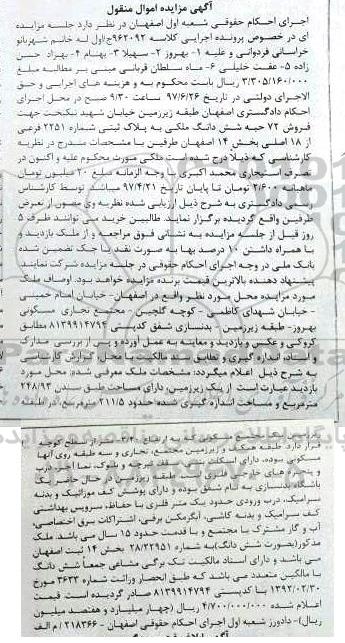 آگهی مزایده اموال منقول
اجرای احکام حقوقی شعبه اول اصفهان در نظر دارد جلسه مزایده
ای در خصوص پرونده اجرایی کلاسه ۹۶۲۰۹۲ج/اول له خانم شهربانو
خراسانی فردوانی و علیه ۱- بهروز ۲- سهیلا ۳- بهنام ۴- بهزاد حسن
زاده ۵- عفت خلیلی ۶- ماه سلطان قربانی مبنی بر مطالبه مبلغ
۳/۳۰۵/۱۶۰/۰۰۰ ریال بابت محکوم به و هزینه های اجرایی و حق
الاجرای دولتی در تاریخ ۹۷/۶/۲۶ ساعت ۹/۳۰ صبح در محل اجرای
احکام دادگستری اصفهان طبقه زیرزمین خیابان شهید نیکبخت جهت
فروش ۷۲ حبه شش دانگ ملکی به پلاک ثبتی شماره ۲۲۵۱ فرعی
از ۱۸ اصلی بخش ۱۴ اصفهان طرفین با مشخصات مندرج در نظریه
کارشناسی که ذیلا درج شده است ملکی مورث محکوم علیه و اکنون در
تصرف استیجاری محمد اکبری با وجه الزمانه مبلغ ۲۰ میلیون تومان
ماهیانه ۲/۶۰۰ تومان تا پایان تاریخ ۹۷/۴/۲۱ میباشد توسط کارشناس
رسمی دادگستری به شرح ذیل ارزیابی شده نظریه وی مصون از تعرض
طرفین واقع گردیده برگزار نماید. طالبین خرید می توانند ظرف ۵
روز قبل از جلسه مزایده به نشانی فوق مراجعه و از ملک بازدید و
با همراه داشتن ۱۰ درصد بها به صورت نقد یا چک تضمین شده
بانک ملی در وجه اجرای احکام حقوقی در جلسه مزایده شرکت نمایند
پیشنهاد دهنده بالاترین قیمت برنده مزایده خواهد بود. اوصاف ملک
مورد مزایده محل مورد نظر واقع در اصفهان- خیابان امام خمینی
- خیابان شهدای کاظمی - کوچه گلچین - مجتمع تجاری مسکونی
بهروز- طبقه زیرزمین - بدنسازی شفق کدپستی ۸۱۳۹۹۱۴۷۹۴ مطابق
کروکی و عکس و بازدید و معاینه به عمل آورده و پس از بررسی مدارک
و اسناد، اندازه گیری و تطابق سند مالکیت با محل، گزارش کارشناسی
به شرح ذیل اعلام میگردد: مشخصات ملک معرفی شده: محل مورد
بازدید عبارت است از یک زیرزمین، دارای مساحت طبق سندن ۲۴۸/۹۳
مترمربع و مساحت اندازه گیری شده حدود ۲۱۱/۵ مترمربع، در طبقه
قرار دارد. طبقه همکف و زیرزمین مجتمع، تجاری و سه طبقه روی آنها
مسکونی بوده، دارای سقف تیرچه و بلوک، نما آجر، درب
و پنجره های خارجی فلزی طبقه زیرزمین در حال حاضر یک
باشگاه بدنسازی به نام شفق بوده و دارای پوشش کف موزائیک و بدنه
سرامیک، درب ورودی حدود یک متر فلزی با حفاظ، سرویس بهداشتی
کف سرامیک و بدنه کاشی، آبگرمکن برقی، اشتراکات برق اختصاصی،
آب و گاز مشترک با مجتمع و با قدمت حدود ۱۵ سال می باشد. ملک
مذکور(بصورت شش دانگ)به شماره ۲۸/۲۲۹۵۱ بخش ۱۴ ثبت اصفهان
می باشد و دارای اسناد مالکیت تک برگی مشاعی جمعا شش دانگ
با مالکین متعدد می باشد که طبق انحصار وراثت شماره ۳۶۳۳ مورخ
۱۳۹۲/۰۲/۳۰ با کدپستی ۸۱۳۹۹۱۴۷۹۴ صادر گردیده است. قیمت
اعلام شده ۴/۷۰۰/۰۰۰/۰۰۰ ریال (چهار میلیارد و هفتصد میلیون
ریال)- دادورز شعبه اول اجرای احکام حقوقی اصفهان - ۲۱۸۳۶۶ / م الف